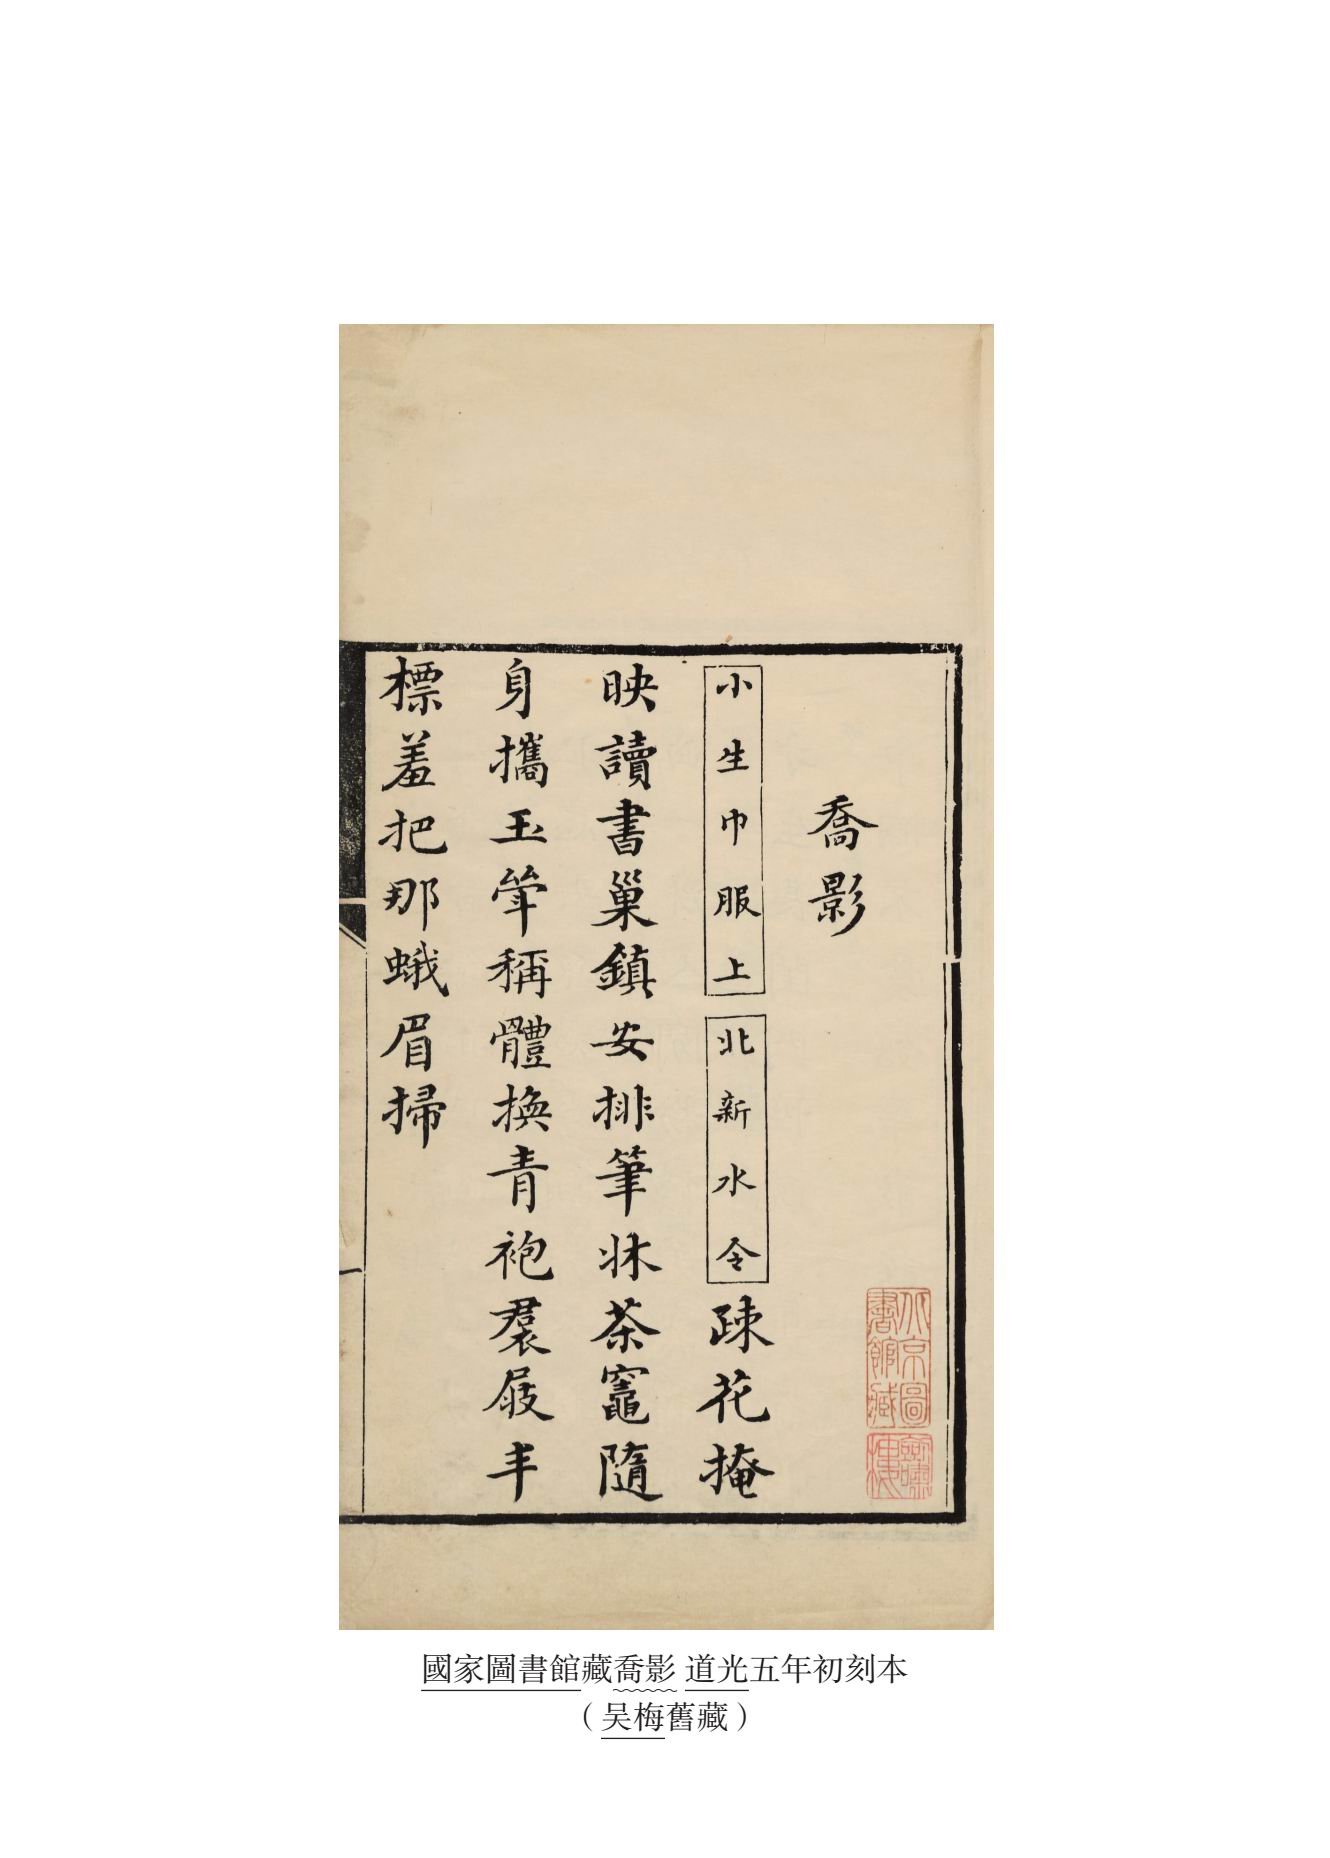 喬影
小生巾服上 北新水令 疎花掩
映讀書巢鎮安排筆牀茶竈隨
身攜玉斝稱體換青袍裠屐丰
標羞把那蛾眉掃
北京圖
書館藏
國家圖書館藏喬影 道光五年初刻本
（吴梅舊藏）